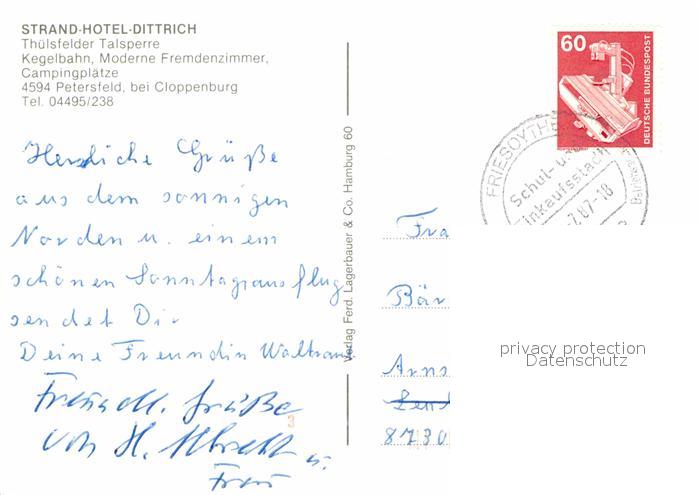 STRAND-HOTEL-DITTRICH
Thülsfelder Talsperre
Kegelbahn, Moderne Fremdenzimmer,
Campingplätze
4594 Petersfeld, bei Cloppenburg
Tel. 04495/238
Herzliche Grüße
aus dem sonnigen
Norden u. einem
schönen Sonntagsausflug
sendet Dir
Deine Freundin Waltraud
Freundl. Grüße
von H. Albrecht u.
Frau
3
Verlag Ferd. Lagerbauer & Co. Hamburg 60
60
DEUTSCHE BUNDESPOST
FRIESOYTHE
Schul- u.
inkaufsstadt
7.87-18
Fra
Bär
Arns
8730
privacy protection
Datenschutz